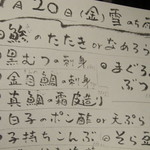 月20日(金)雪のち
鯵のたたき or なめろう
黒むつの刺身 まぐろ
金目鯛の刺身 ぶつ
真鯛の霜皮造り
白子のポン酢 or 天ぷら
子持ちこんぶ そら豆